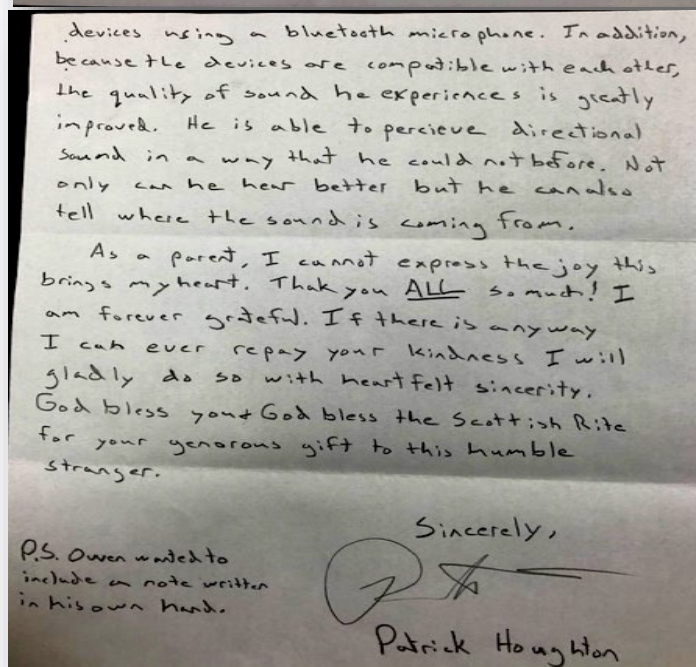 devices using a bluetooth microphone. In addition,
because the devices are compatible with each other,
the quality of sound he experiences is greatly
improved. He is able to percieve directional
sound in a way that he could not before. Not
only can he hear better but he can also
tell where the sound is coming from.
As a parent, I cannot express the joy this
brings my heart. Thak you ALL so much! I
am forever grateful. If there is anyway
I can ever repay your kindness I will
gladly do so with heartfelt sincerity.
God bless you & God bless the Scottish Rite
for your generous gift to this humble
stranger.
Sincerely,
Patrick Houghton
P.S. Owen wanted to
include a note written
in his own hand.